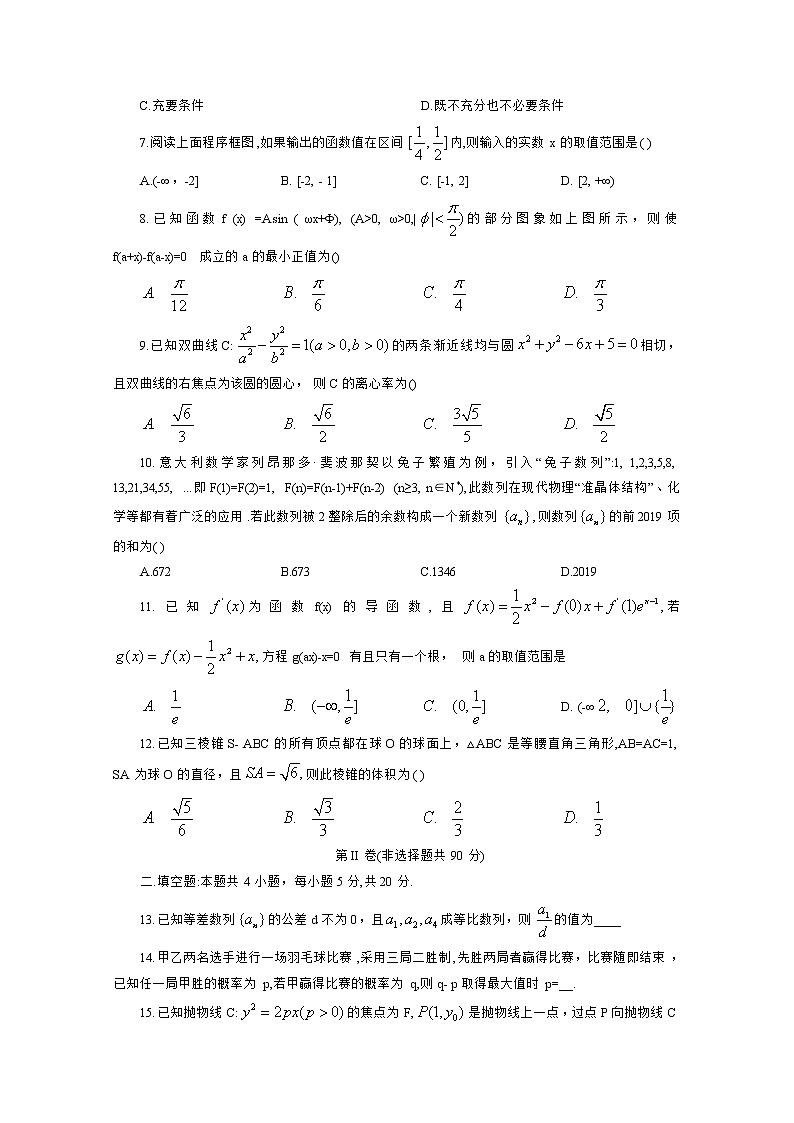 C.充要条件 D.既不充分也不必要条件
7.阅读上面程序框图,如果输出的函数值在区间 [1/4, 1/2] 内,则输入的实数 x 的取值范围是( )
A.(-∞,-2] B. [-2, - 1] C. [-1, 2] D. [2, +∞)
8. 已知函数 f (x) =Asin ( ωx+Φ), (A>0, ω>0,|ϕ|<π/2) 的部分图象如上图所示，则使
f(a+x)-f(a-x)=0 成立的 a 的最小正值为()
A. π/12 B. π/6 C. π/4 D. π/3
9.已知双曲线 C: x²/a² − y²/b² = 1(a > 0, b > 0) 的两条渐近线均与圆 x² + y² − 6x + 5 = 0 相切，
且双曲线的右焦点为该圆的圆心， 则 C 的离心率为()
A. √6/3 B. √6/2 C. 3√5/5 D. √5/2
10. 意大利数学家列昂那多·斐波那契以兔子繁殖为例，引入“兔子数列”:1, 1,2,3,5,8,
13,21,34,55, ...即 F(1)=F(2)=1, F(n)=F(n-1)+F(n-2) (n≥3, n∈N*),此数列在现代物理“准晶体结构”、化
学等都有着广泛的应用 .若此数列被 2 整除后的余数构成一个新数列 {aₙ} ,则数列 {aₙ} 的前 2019 项
的和为( )
A.672 B.673 C.1346 D.2019
11. 已知 f′(x) 为函数 f(x) 的导函数, 且 f(x) = 1/2 x² − f(0)x + f′(1)eˣ⁻¹, 若
g(x) = f(x) − 1/2 x² + x, 方程 g(ax)-x=0 有且只有一个根， 则 a 的取值范围是
A. 1/e B. (−∞, 1/e] C. (0, 1/e] D. (-∞ 2, 0]∪{1/e}
12.已知三棱锥 S- ABC 的所有顶点都在球 O 的球面上，△ABC 是等腰直角三角形,AB=AC=1,
SA 为球 O 的直径，且 SA = √6, 则此棱锥的体积为( )
A. √5/6 B. √3/3 C. 2/3 D. 1/3
第 II 卷(非选择题共 90 分)
二.填空题:本题共 4 小题，每小题 5 分,共 20 分.
13.已知等差数列 {aₙ} 的公差 d 不为 0，且 a₁, a₂, a₄ 成等比数列，则 a₁/d 的值为____
14.甲乙两名选手进行一场羽毛球比赛 ,采用三局二胜制,先胜两局者赢得比赛，比赛随即结束 ，
已知任一局甲胜的概率为 p,若甲赢得比赛的概率为 q,则 q- p 取得最大值时 p=__.
15.已知抛物线 C: y² = 2px(p > 0) 的焦点为 F, P(1, y₀) 是抛物线上一点 ,过点 P 向抛物线 C